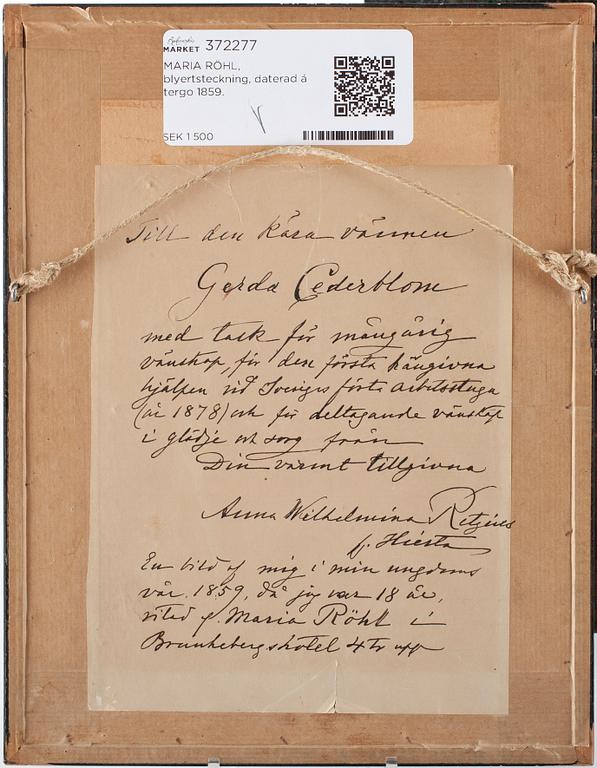 Bukowskis
MARKET 372277
MARIA RÖHL,
blyertsteckning, daterad á
tergo 1859.
SEK 1 500
Till den kära vännen
Gerda Cederblom
med tack för mångårig
vänskap, för den första hängivna
hjälpen vid Sveriges första arbetsstuga
(år 1878) och för deltagande vänskap
i glädje och sorg från
Din varmt tillgivna
Anna Wilhelmina Retzius
f. Hierta
En bild af mig i min ungdoms
vår 1859, då jag var 18 år,
ritad af Maria Röhl i
Brunkebergshotel 4 tr upp